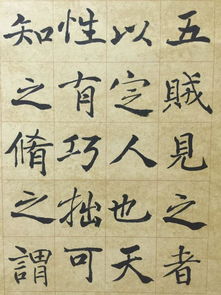 五賊見之者
以定人也天
性有巧拙可
知之脩之謂